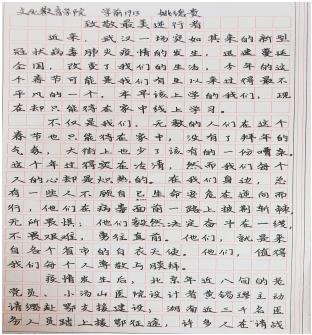 文化教育学院 学前1913 姚德贵
致敬最美逆行者
近来，武汉一场突如其来的新型
冠状病毒肺炎疫情的发生，迅速蔓延
全国，改变了我们的生活，今年的这
个春节可能是我们有生以来过得最不
平凡的一个，本早该上学的我们，现
在却只能待在家中线上学习。
不仅是我们，无数的人们在这个
春节也只能待在家中，没有了拜年的
气氛，大街上也少了该有的一份嘈杂。
这个年过得实在冷清，然而我们每个
人的心却是炽热的。在我们身边，总
有一些人不顾自己生命安危在逆向而
行，他们在病毒面前一路上披荆斩棘
无所畏惧；他们毅然决定奋斗在一线，
不畏艰难，勇往直前。他们，就是来
自各个省市的白衣天使。他们，值得
我们每个人尊敬与膜拜。
疫情发生后，北京年近八旬的老
党员、小汤山医院设计者黄锡璆主动
请缨赴鄂支援建设；湖南近三千名医
务人员踏上援鄂征途，许多人在请战